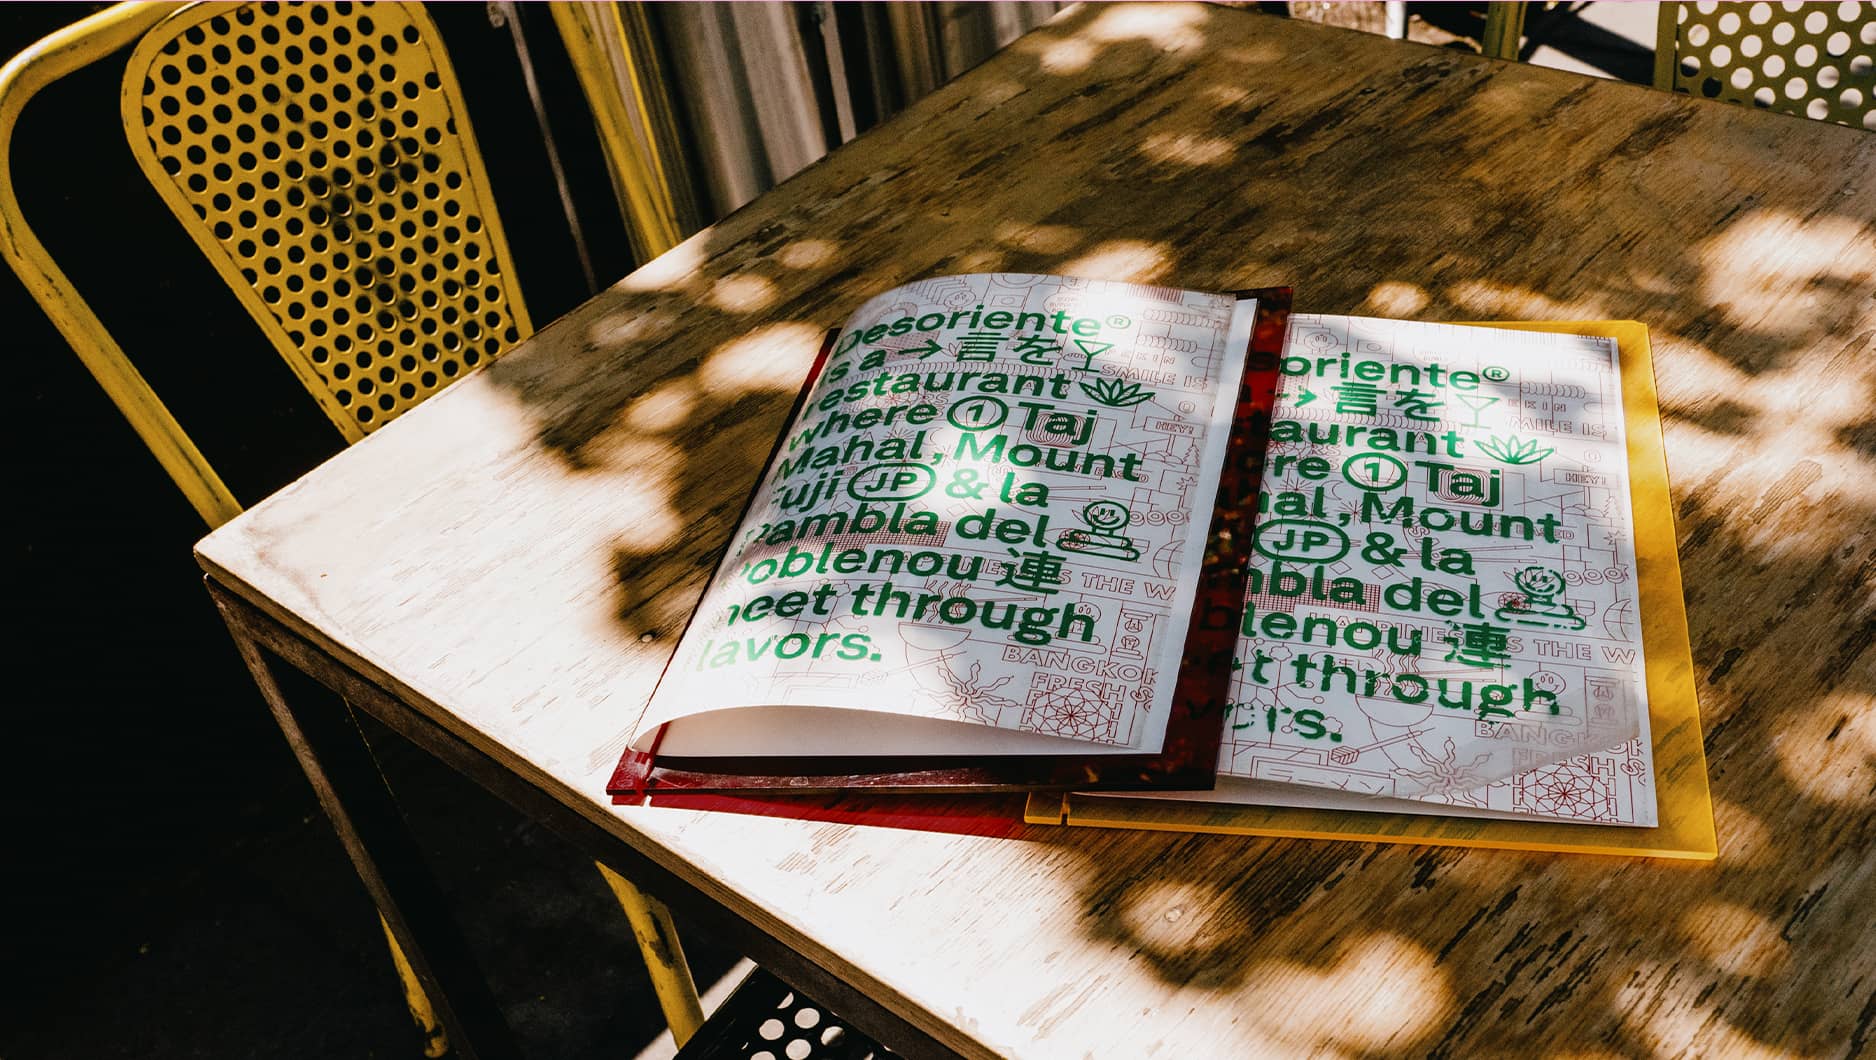 Desoriente®
is a → 言を
restaurant
where 1 Taj
Mahal, Mount
Fuji JP & la
Rambla del
Poblenou 連
meet through
flavors.
SMILE IS
HEY!
IS THE W
BANGKOK
FRESH S
soriente®
→ 言を
taurant
ere 1 Taj
hal, Mount
JP & la
mbla del
blenou 連
et through
SMILE IS
HEY!
HAPPINESS IS THE W
BANGKOK
FRESH S